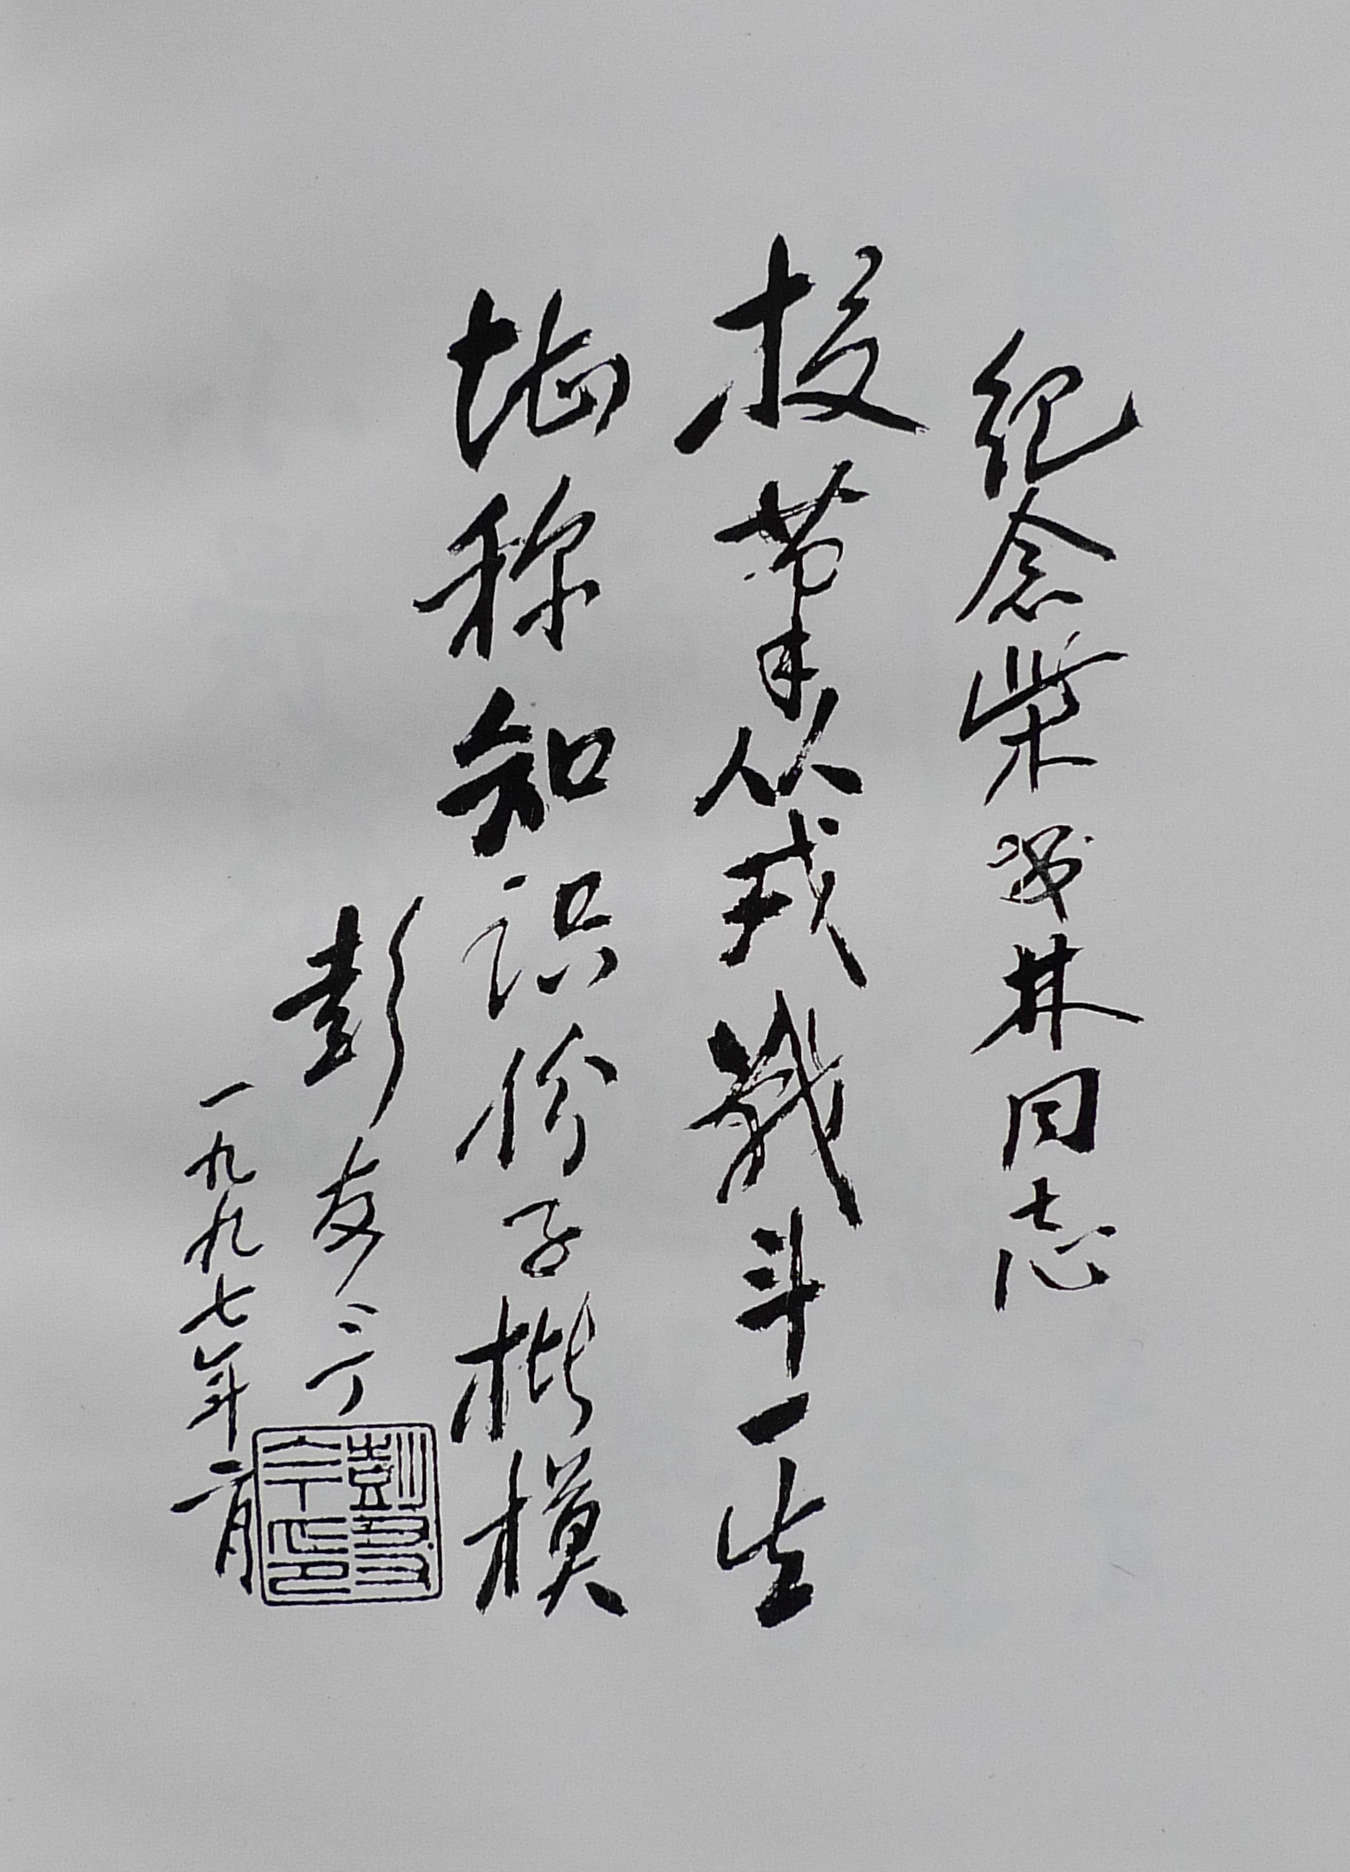 纪念柴林同志
投筆从戎戰斗一生
堪称知识份子楷模
彭友今
一九九七年二月
彭友今印